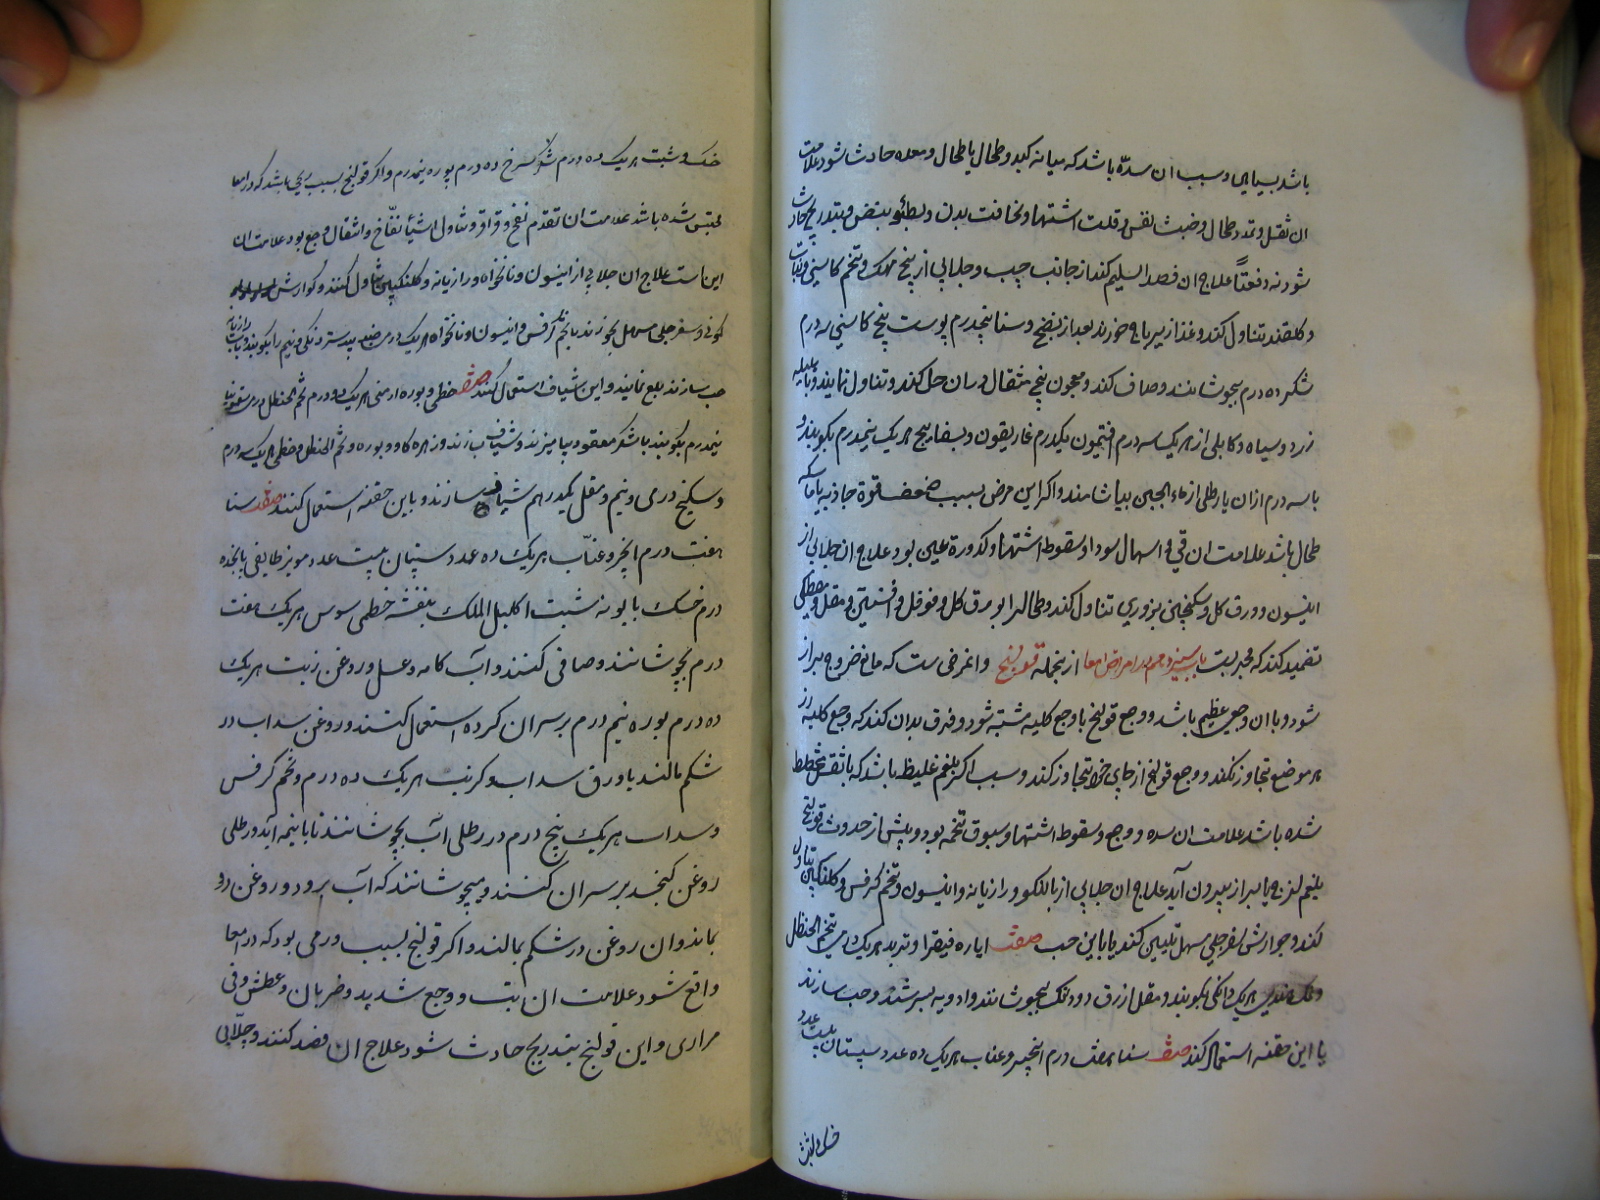 باشد بسیاهی و سبب ان سدّه باشد که میانه کبد و طحال یا طحال و معده حادث شود علامت
ان ثقل و تمدد طحال و خبث نفس و قلت اشتها و نحافت بدن و بطئو نبض و بتدریج حادث
شود نه دفعتاً علاج ان فصد اسلیم کند از جانب چپ و جلابی از بیخ مهک و تخم کاسنی و نبات
و گلقند تناول کند و غذا زیرباج خورند بعد از نضج و سنا پنجدرم پوست بیخ کاسنی سه درم
شکر ده درم بجوشانند و صاف کند و معجون نجح مثقال در ان حل کند و تناول نمایند و یا هلیله
زرد و سیاه و کابلی از هریک سه درم افتیمون یکدرم غاریقون و بسفایج هریک نیمدرم بکوبند و
با سه درم ازان یا رطلی از ماء الجبن بیاشامند و اگر این مرض بسبب ضعف قوة جاذبه یا ماسکه
طحال باشد علامت ان قی و اسهال سودا و سقوط اشتها و کدورة عین بود علاج ان جلابی از
انیسون و ورق گل و سکنجبین بزوری تناول کند و طحال را بورق گل و فوفل و افسنتین و مقل و مصطکی
تضمید کند که مجربست باب سیزدهم در امراض امعا از نجمله قولنج و ا مرضی ست که مانع خروج براز
شود و با ان وجعی عظیم باشد و وجع قولنج با وجع کلیه مشتبه شود و فرق بدان کنند که وجع کلیه از
هر موضع تجاوز نکند و وجع قولنج از جای خود تجاوز کند و سبب اکثر بلغم غلیظ باشد که با ثقل مختلط
شده باشد علامت ان سده و وجع و سقوط اشتها و سبوق تخمه بود و پیش از حدوث قولنج
بلغم لزج با براز بیرون آید علاج ان جلابی از بالنکو و رازیانه و انیسون و تخم کرفس و گلنگبین تناول
کند و جوارش سفرجلی مسهل تلیین کند یا با این حب صفت ایاره فیقرا و تربد هریک درمی تخم الحنظل
و نمک هندی هریک دانگی بکوبند و مقل ازرق دو دانگ بجوشانند و ادویه بسرشند و حب سازند
یا این حقنه استعمال کند صفت سنا هفت درم انجیر و عناب هریک ده عدد سپستان بیست عدد
خسک و شبت
خسک و شبت هریک ده درم شکر سرخ ده درم بوره نیمدرم و اگر قولنج بسبب ریحی باشد که در امعا
محتبس شده باشد علامت ان تقدم نفخ و قراقر و تناول اشیاء نفّاخ و انتقال وجع بود علامت ان
این است علاج ان جلابی از انیسون و نانخواه و رازیانه و گلنگبین تناول کنند و گوارش
کمونی و سفرجلی مسهل بخورند یا تخم کرفس و انیسون و نانخواه هریک درمی جند بیدستر دانگی و نیم را بکوبند و باب رازیانه
حب سازند بلع نمایند و این شیاف استعمال کنند صفت خطمی و بوره ارمنی هریک دو درم شحم الحنظل درمی سقمونیا
نیمدرم بکوبند با شکر معقود بیامیزند و شیاف سازند و زهره گاو و بوره و شحم الحنظل و خطمی هریک سه درم
و سکبینج درمی و نیم و مقل یکدرهم شیاف سازند و باین حقنه استعمال کنند صفت سنا
هفت درم انجیر و عنّاب هریک ده عدد سپستان بیست عدد مویز طایفی پانجده
درم خسک بابونه شبت اکلیل الملک بنفشه خطمی سوس هریک هفت
درم بجوشانند و صافی کنند و آب کامه و عسل و روغن زیت هریک
ده درم بوره نیم درم بر سر ان کرده استعمال کنند و روغن سداب در
شکم مالند یا ورق سداب و کرنب هریک ده درم و تخم کرفس
و سداب هریک پنج درم در رطلی آب بجوشانند تا با نیمه آید و رطلی
روغن کنجد بر سر ان کنند و میجوشانند که آب برود و روغن دو
بماند و ان روغن در شکم بمالند و اگر قولنج بسبب ورمی بود که در امعا
واقع شود علامت ان بتب و وجع شدید و ضربان و عطش و قی
مراری و این قولنج بتدریج حادث شود علاج ان فصد کنند و جلّابی